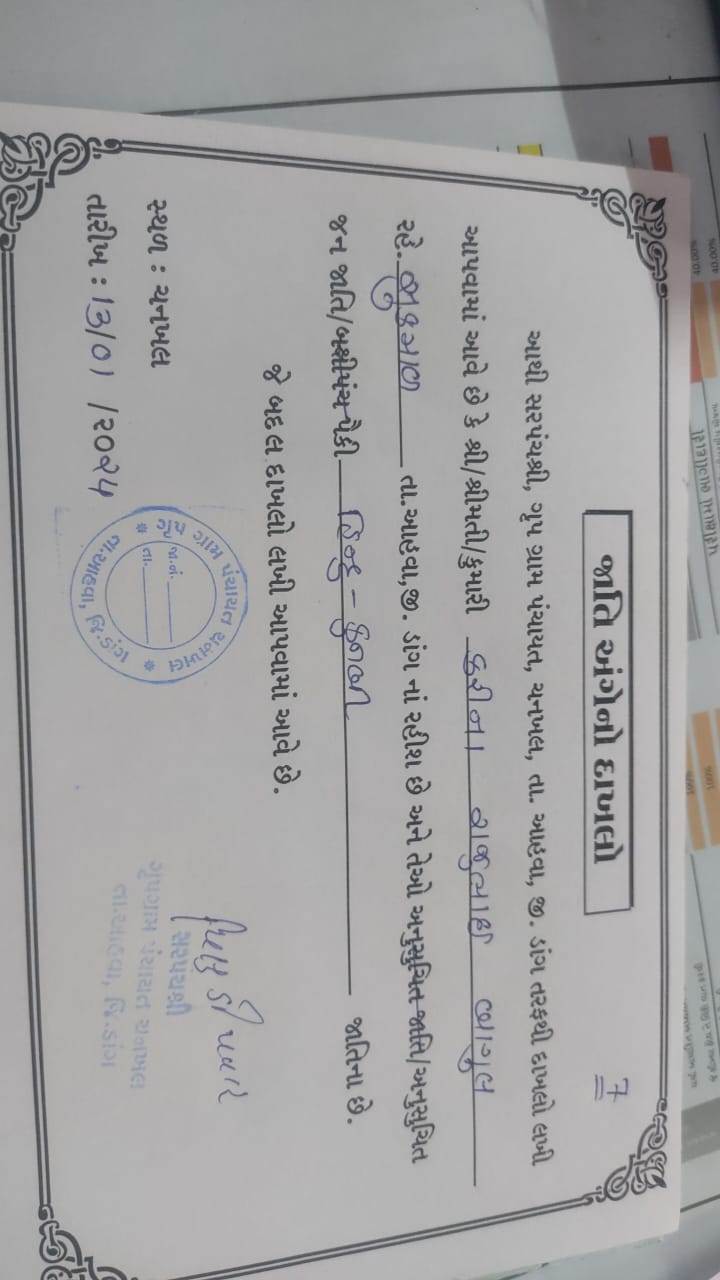 જાતિ અંગેનો દાખલો
આથી સરપંચશ્રી, ગ્રુપ ગ્રામ પંચાયત, ચનખલ, તા. આહવા, જી. ડાંગ તરફથી દાખલો લખી
આપવામાં આવે છે કે શ્રી/શ્રીમતી/કુમારી કરીના રાજુભાઈ બાગુલ
રહે. તા.આહવા,જી. ડાંગ નાં રહીશ છે અને તેઓ અનુસુચિત જાતિ/અનુસુચિત
જન જાતિ/બક્ષીપંચ પૈકી હિન્દુ - કુનબી જાતિના છે.
જે બદલ દાખલો લખી આપવામાં આવે છે.
સ્થળ : ચનખલ
તારીખ : 13/01 /૨૦૨૫
ગ્રામ પંચાયત ચનખલ
તા.આહવા, જી.ડાંગ
જા.નં.
તા.
સરપંચશ્રી
ગ્રુપગ્રામ પંચાયત ચનખલ
તા.આહવા, જિ.ડાંગ